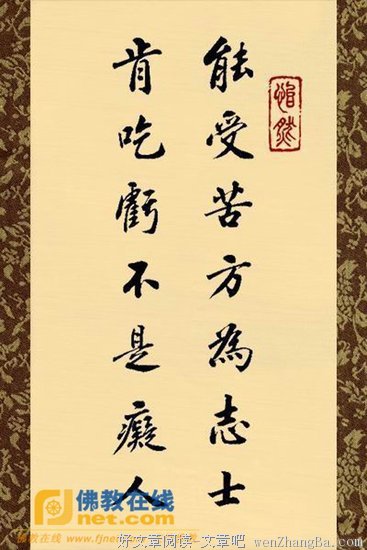 能受苦方為志士
肯吃虧不是癡人
佛教在线
net.com
佛教在线 www.fjnet.com
好文章阅读-文章吧 wenZhangBa.com